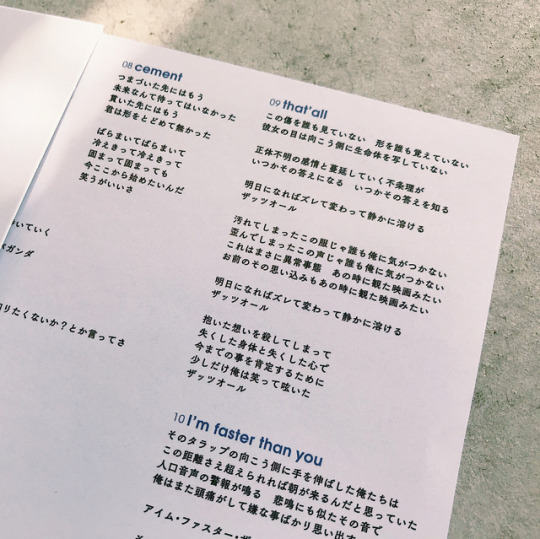 いていく
ガンダ
りたくないか？とか言ってさ
08 cement
つまづいた先にはもう
未来なんて待ってはいなかった
貫いた先にはもう
君は形をとどめて無かった
ばらまいてばらまいて
冷えきって冷えきって
固まって固まっても
今ここから始めたいんだ
笑うがいいさ
09 that'all
この傷を誰も見ていない　形を誰も覚えていない
彼女の目は向こう側に生命体を写していない
正体不明の感情と蔓延していく不条理が
いつかその答えになる　いつかその答えを知る
明日になればズレて変わって静かに溶ける
ザッツオール
汚れてしまったこの服じゃ誰も俺に気がつかない
歪んでしまったこの声じゃ誰も俺に気がつかない
これはまさに異常事態　あの時に観た映画みたい
お前のその思い込みもあの時に観た映画みたい
明日になればズレて変わって静かに溶ける
ザッツオール
抱いた想いを殺してしまって
失くした身体と失くした心で
今までの事を肯定するために
少しだけ俺は笑って呟いた
ザッツオール
10 I'm faster than you
そのタラップの向こう側に手を伸ばした俺たちは
この距離さえ超えられれば朝が来るんだと思っていた
人口音声の警報が鳴る　悲鳴にも似たその音で
俺はまた頭痛がして嫌な事ばかり思い出す
アイム・ファスター・ザ